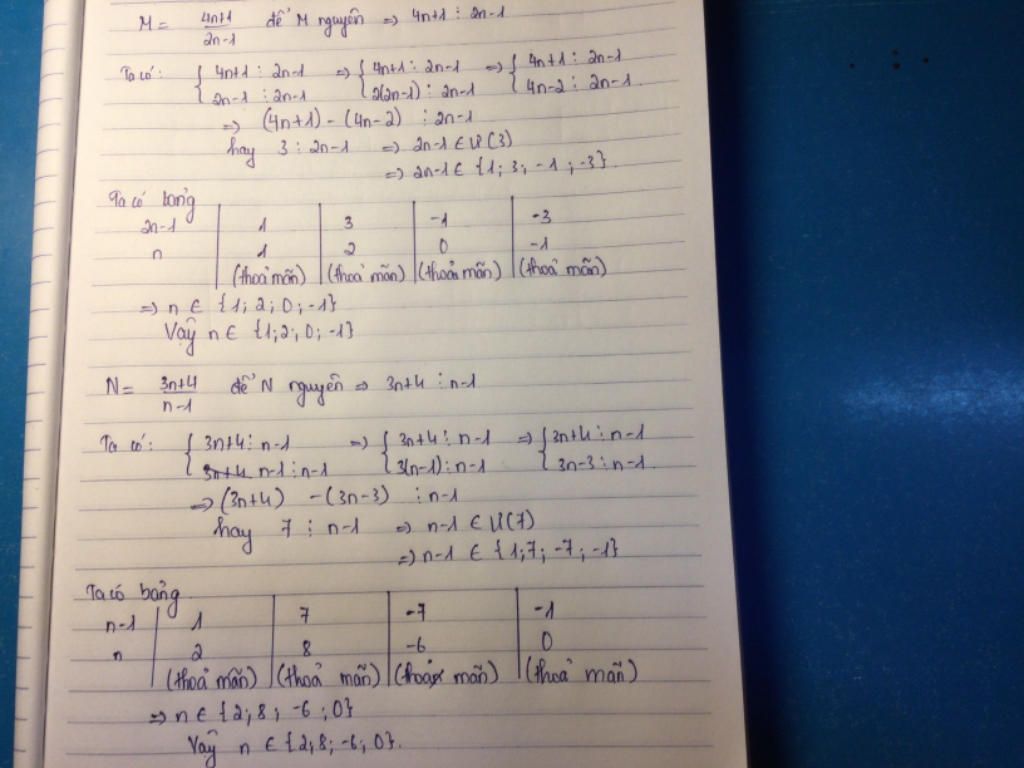 M = (4n+1)/(2n-1) để M nguyên => 4n+1 ⋮ 2n-1
Ta có: { 4n+1 ⋮ 2n-1 => { 4n+1 ⋮ 2n-1 => { 4n+1 ⋮ 2n-1
2n-1 ⋮ 2n-1 2(2n-1) ⋮ 2n-1 4n-2 ⋮ 2n-1
=> (4n+1) - (4n-2) ⋮ 2n-1
hay 3 ⋮ 2n-1 => 2n-1 ∈ Ư(3)
=> 2n-1 ∈ {1; 3; -1; -3}.
Ta có bảng
2n-1 | 1 | 3 | -1 | -3
n | 1 | 2 | 0 | -1
(thoả mãn) | (thoả mãn) | (thoả mãn) | (thoả mãn)
=> n ∈ {1; 2; 0; -1}
Vậy n ∈ {1; 2; 0; -1}
N = (3n+4)/(n-1) để N nguyên => 3n+4 ⋮ n-1
Ta có: { 3n+4 ⋮ n-1 => { 3n+4 ⋮ n-1 => { 3n+4 ⋮ n-1
3n+4 n-1 ⋮ n-1 3(n-1) ⋮ n-1 3n-3 ⋮ n-1.
=> (3n+4) - (3n-3) ⋮ n-1
hay 7 ⋮ n-1 => n-1 ∈ Ư(7)
=> n-1 ∈ {1; 7; -7; -1}
Ta có bảng
n-1 | 1 | 7 | -7 | -1
n | 2 | 8 | -6 | 0
(thoả mãn) | (thoả mãn) | (thoả mãn) | (thoả mãn)
=> n ∈ {2; 8; -6; 0}
Vậy n ∈ {2; 8; -6; 0}.